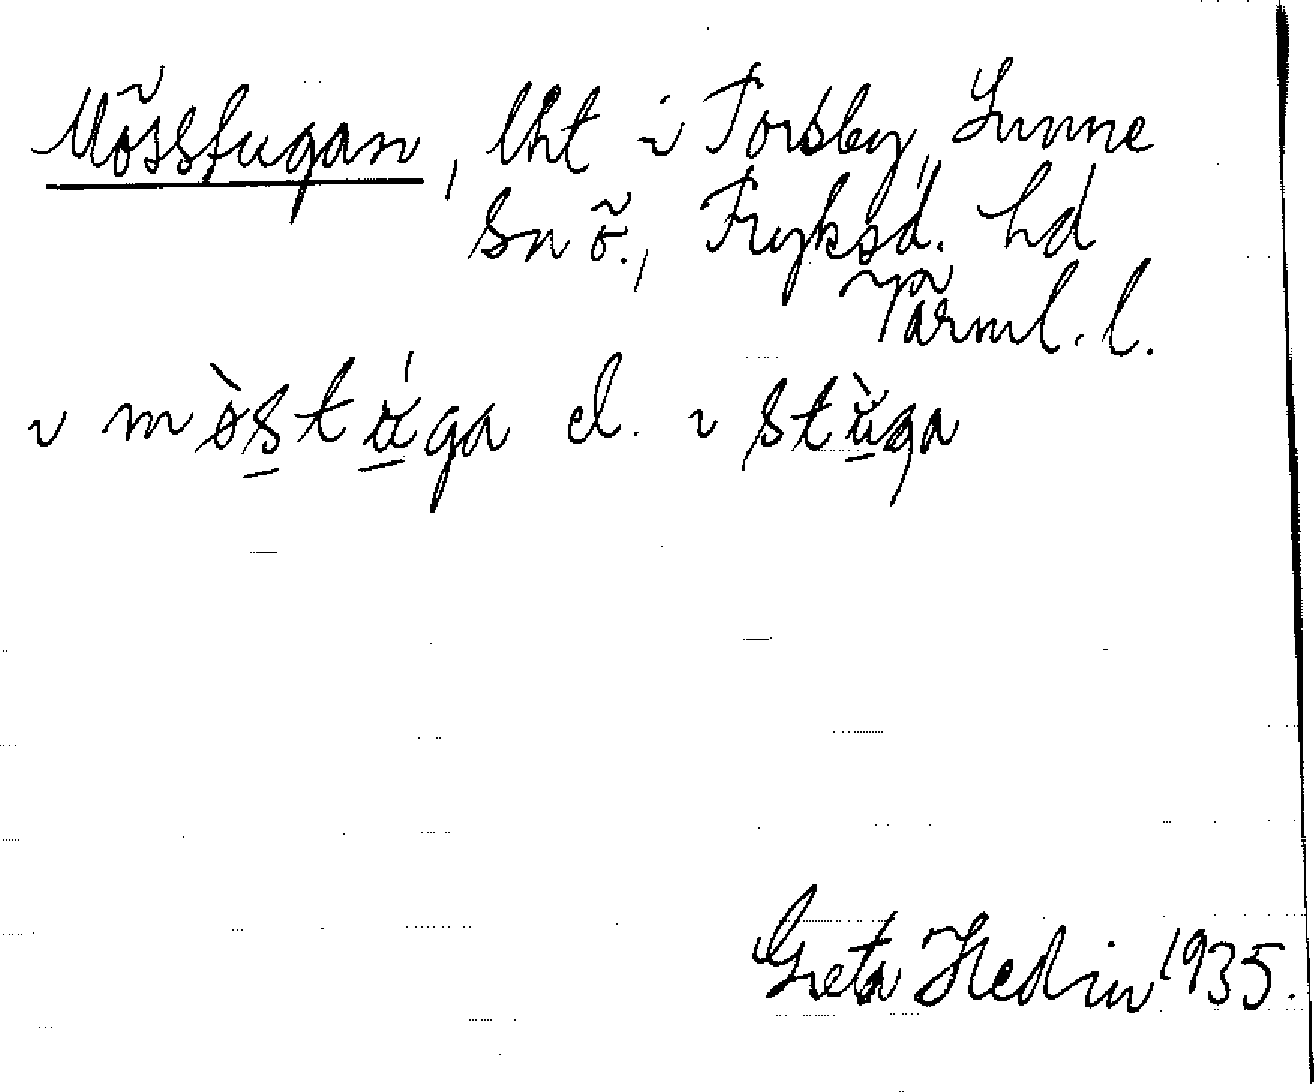 Mösstugan, lht i Torsby, Sunne
sn ö., Fryksd. hd
Värml. l.
i mö̀stúga el. i stùga
Greta Hedin 1935.